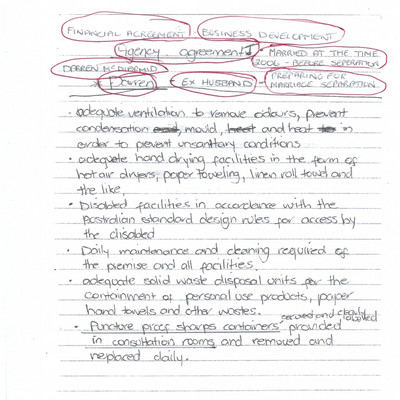 FINANCIAL AGREEMENT - BUSINESS DEVELOPMENT
Agency agreement 1 - MARRIED AT THE TIME
2006 - BEFORE SEPERATION
DARREN MCDIARMID
Darren - EX HUSBAND - PREPARING FOR
MARRIAGE SEPARATION.
· adequate ventilation to remove odours, prevent
condensation mould, and heat in
order to prevent unsanitary conditions
· adequate hand drying facilities in the form of
hot air dryers, paper toweling, linen roll towel and
the like,
· Disabled facilities in accordance with the
Australian standard design rules for access by
the disabled
· Daily maintenance and cleaning required of
the premise and all facilities.
· adequate solid waste disposal units for the
containment of personal use products, paper
hand towels and other wastes.
secured and clearly labelled
· Puncture proof sharps containers provided
in consultation rooms and removed and
replaced daily.